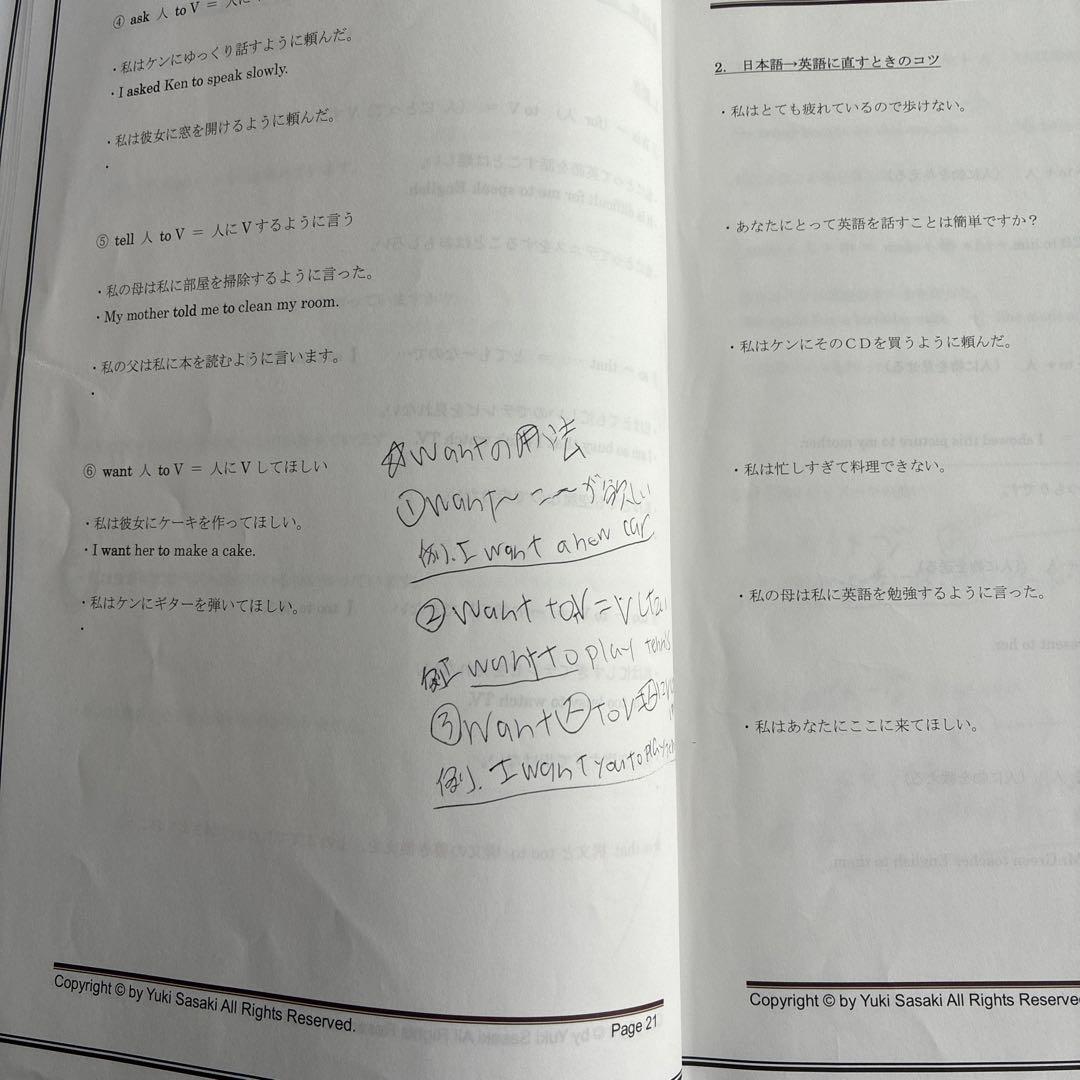 ④ ask 人 to V = 人に
・私はケンにゆっくり話すように頼んだ。
・I asked Ken to speak slowly.
・私は彼女に窓を開けるように頼んだ。
・
⑤ tell 人 to V = 人に V するように言う
・私の母は私に部屋を掃除するように言った。
・My mother told me to clean my room.
・私の父は私に本を読むように言います。
・
⑥ want 人 to V = 人に V してほしい
・私は彼女にケーキを作ってほしい。
・I want her to make a cake.
・私はケンにギターを弾いてほしい。
・
☆wantの用法
①want〜=〜が欲しい
例). I want a new car
②want to V = Vしたい
例I want to play tennis
③want 人 to V =人に
例). I want you to play
Copyright © by Yuki Sasaki All Rights Reserved.
Page 21
2. 日本語→英語に直すときのコツ
・私はとても疲れているので歩けない。
・あなたにとって英語を話すことは簡単ですか？
・私はケンにそのＣＤを買うように頼んだ。
・私は忙しすぎて料理できない。
・私の母は私に英語を勉強するように言った。
・私はあなたにここに来てほしい。
Copyright © by Yuki Sasaki All Rights Reserved